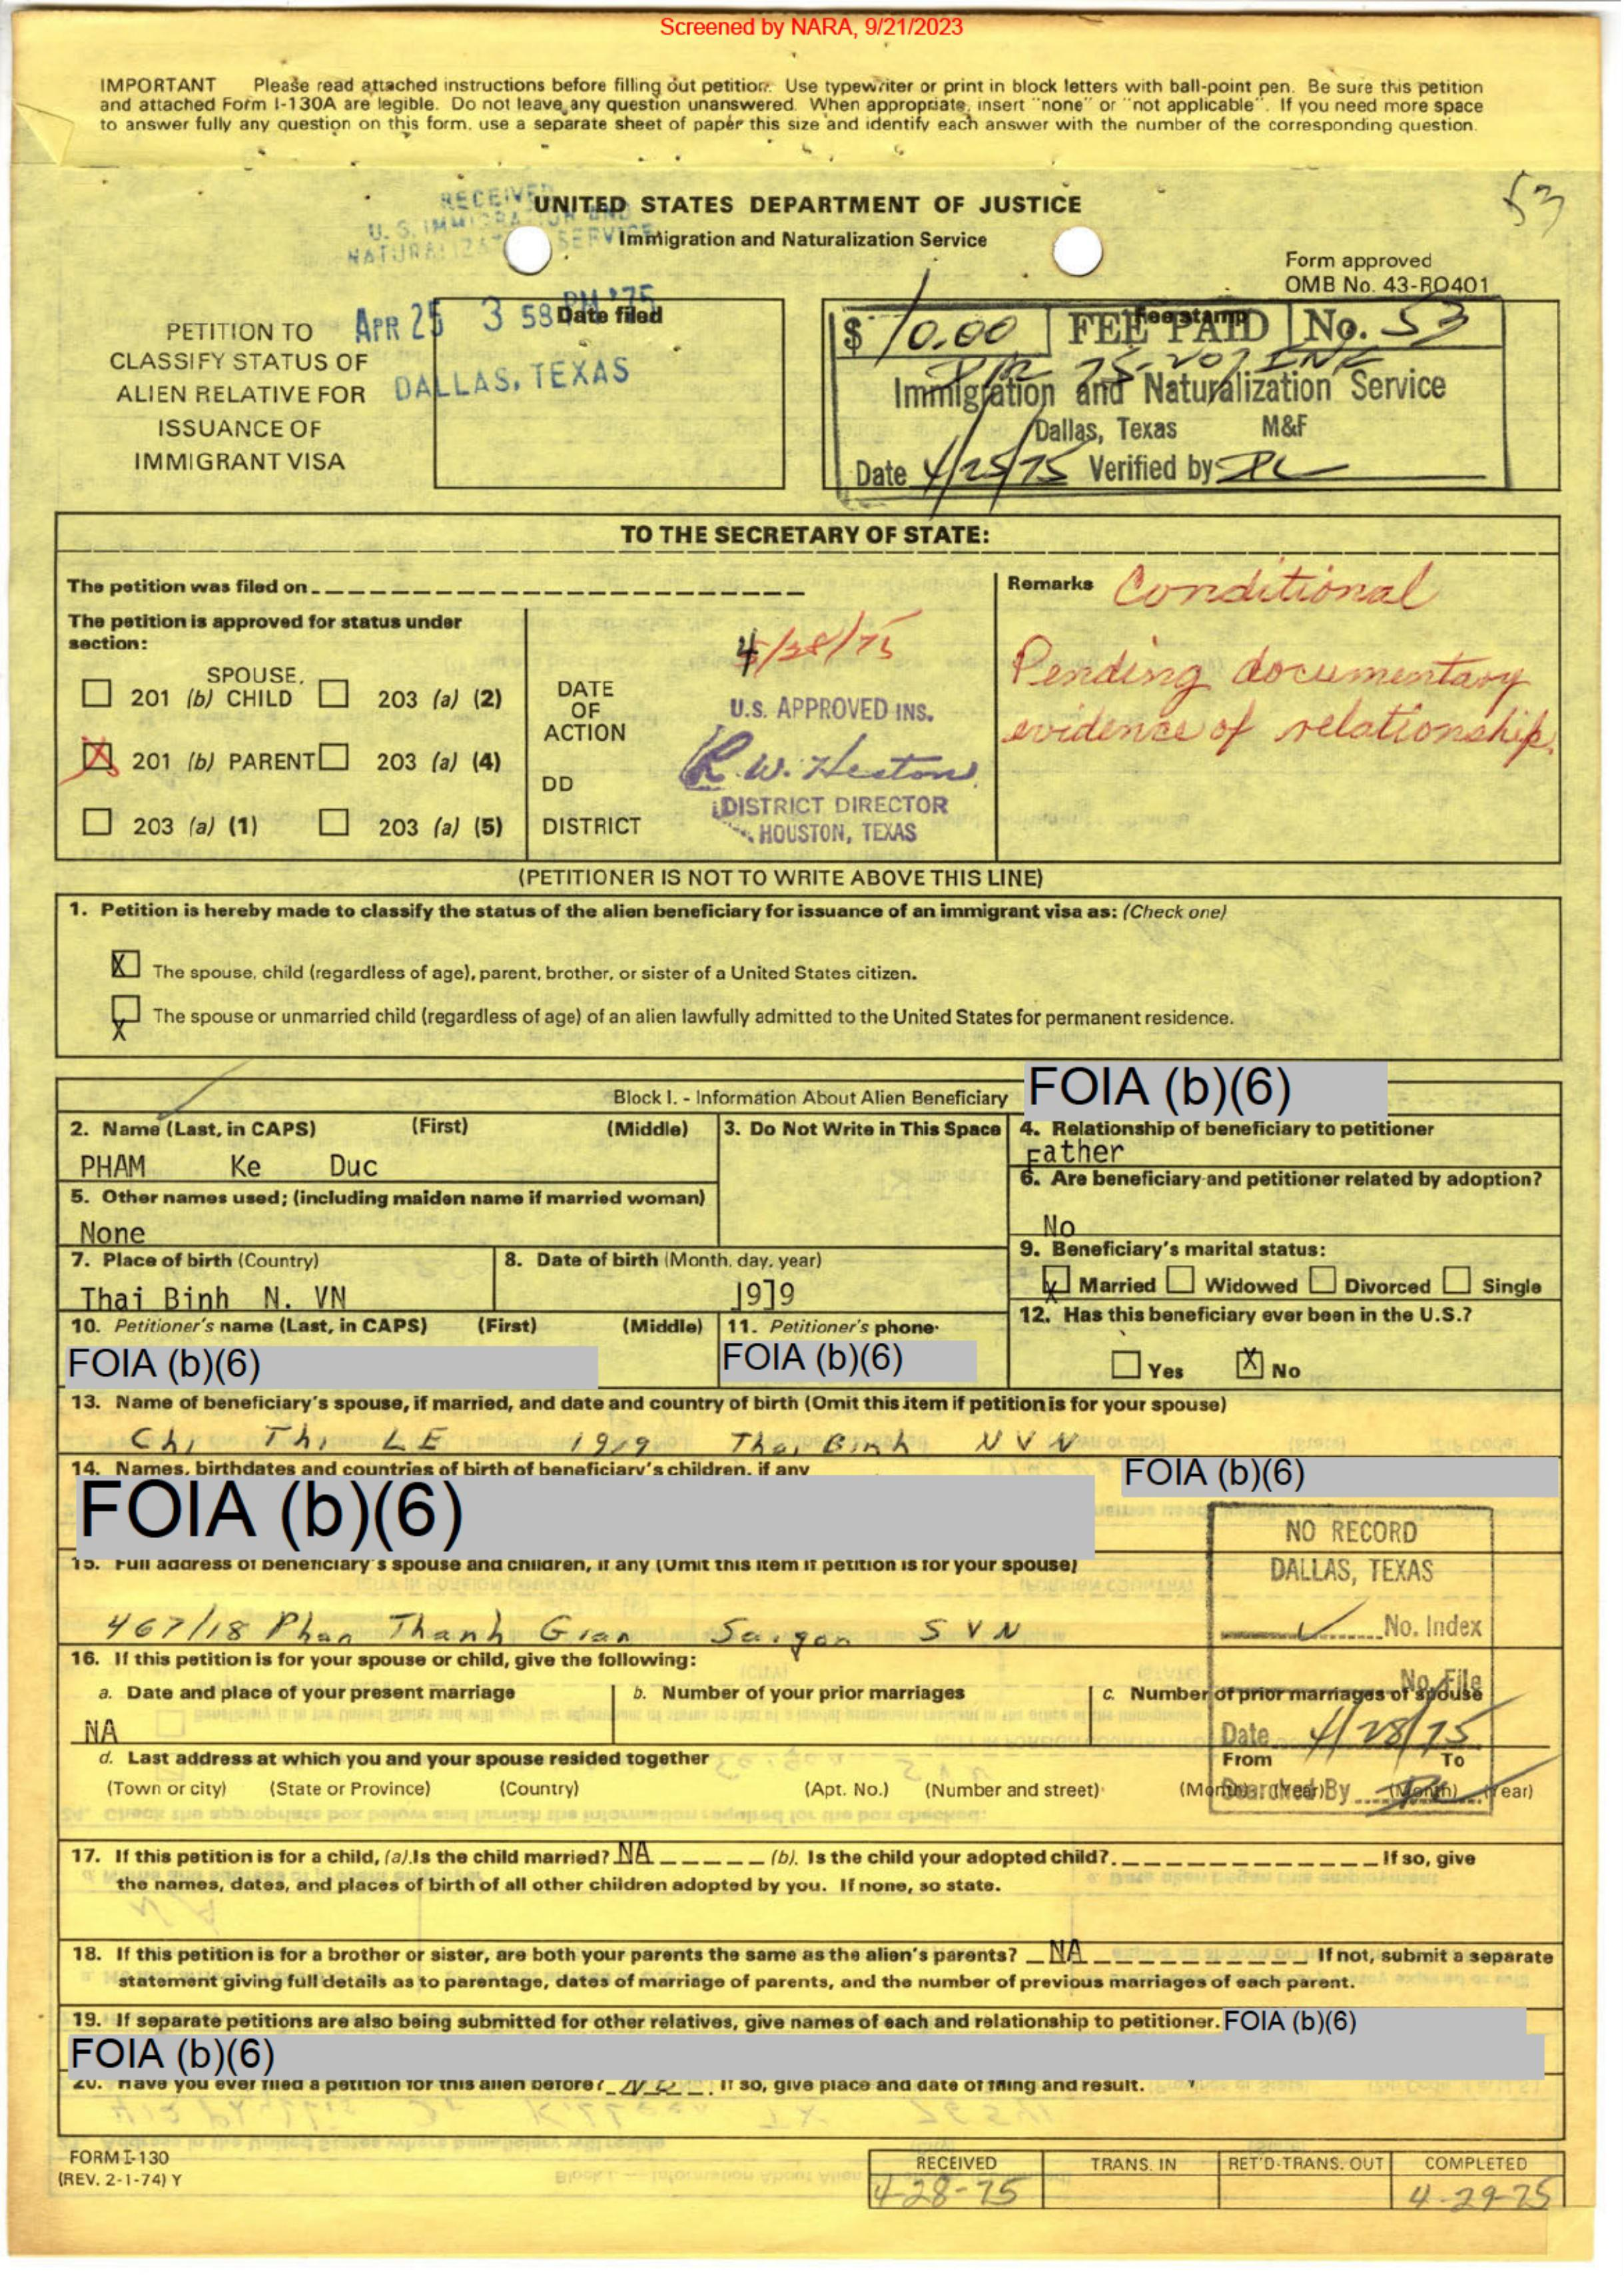 Screened by NARA, 9/21/2023
IMPORTANT Please read attached instructions before filling out petition. Use typewriter or print in block letters with ball-point pen. Be sure this petition
and attached Form I-130A are legible. Do not leave any question unanswered. When appropriate, insert "none" or "not applicable". If you need more space
to answer fully any question on this form, use a separate sheet of paper this size and identify each answer with the number of the corresponding question.
53
RECEIVED
U. S. IMMIGRATION AND
NATURALIZATION SERVICE
UNITED STATES DEPARTMENT OF JUSTICE
Immigration and Naturalization Service
Form approved
OMB No. 43-RO401
PETITION TO
CLASSIFY STATUS OF
ALIEN RELATIVE FOR
ISSUANCE OF
IMMIGRANT VISA
APR 25 3 58 PM '75
DALLAS, TEXAS
Date filed
Fee stamp
$ 10.00 FEE PAID No. 53
Immigration and Naturalization Service
Dallas, Texas M&F
Date 4/25/75 Verified by
TO THE SECRETARY OF STATE:
The petition was filed on
The petition is approved for status under
section:
SPOUSE,
201 (b) CHILD 203 (a) (2)
X 201 (b) PARENT 203 (a) (4)
203 (a) (1) 203 (a) (5)
DATE
OF
ACTION
DD
DISTRICT
4/28/75
U.S. APPROVED INS.
R. W. Heston
DISTRICT DIRECTOR
HOUSTON, TEXAS
Remarks Conditional
Pending documentary
evidence of relationship.
(PETITIONER IS NOT TO WRITE ABOVE THIS LINE)
1. Petition is hereby made to classify the status of the alien beneficiary for issuance of an immigrant visa as: (Check one)
X The spouse, child (regardless of age), parent, brother, or sister of a United States citizen.
X The spouse or unmarried child (regardless of age) of an alien lawfully admitted to the United States for permanent residence.
Block I. - Information About Alien Beneficiary FOIA (b)(6)
2. Name (Last, in CAPS) (First) (Middle)
PHAM Ke Duc
3. Do Not Write in This Space
4. Relationship of beneficiary to petitioner
Father
5. Other names used; (including maiden name if married woman)
None
6. Are beneficiary and petitioner related by adoption?
No
7. Place of birth (Country)
Thai Binh N. VN
8. Date of birth (Month, day, year)
1919
9. Beneficiary's marital status:
X Married Widowed Divorced Single
10. Petitioner's name (Last, in CAPS) (First) (Middle)
FOIA (b)(6)
11. Petitioner's phone
FOIA (b)(6)
12. Has this beneficiary ever been in the U.S.?
Yes X No
13. Name of beneficiary's spouse, if married, and date and country of birth (Omit this item if petition is for your spouse)
Chi Thi LE 1919 Thai Binh N V N
14. Names, birthdates and countries of birth of beneficiary's children, if any
FOIA (b)(6)
FOIA (b)(6)
15. Full address of beneficiary's spouse and children, if any (Omit this item if petition is for your spouse)
467/18 Phan Thanh Gian Saigon S V N
NO RECORD
DALLAS, TEXAS
No. Index
No File
Date 4/28/75
Searched By
16. If this petition is for your spouse or child, give the following:
a. Date and place of your present marriage
NA
b. Number of your prior marriages
c. Number of prior marriages of spouse
d. Last address at which you and your spouse resided together
From To
(Town or city) (State or Province) (Country) (Apt. No.) (Number and street) (Month) (Year) (Month) (Year)
17. If this petition is for a child, (a). Is the child married? NA (b). Is the child your adopted child? If so, give
the names, dates, and places of birth of all other children adopted by you. If none, so state.
18. If this petition is for a brother or sister, are both your parents the same as the alien's parents? NA If not, submit a separate
statement giving full details as to parentage, dates of marriage of parents, and the number of previous marriages of each parent.
19. If separate petitions are also being submitted for other relatives, give names of each and relationship to petitioner. FOIA (b)(6)
FOIA (b)(6)
20. Have you ever filed a petition for this alien before? NO If so, give place and date of filing and result.
FORM I-130
(REV. 2-1-74) Y
RECEIVED TRANS. IN RET'D-TRANS. OUT COMPLETED
4-28-75 4-29-75